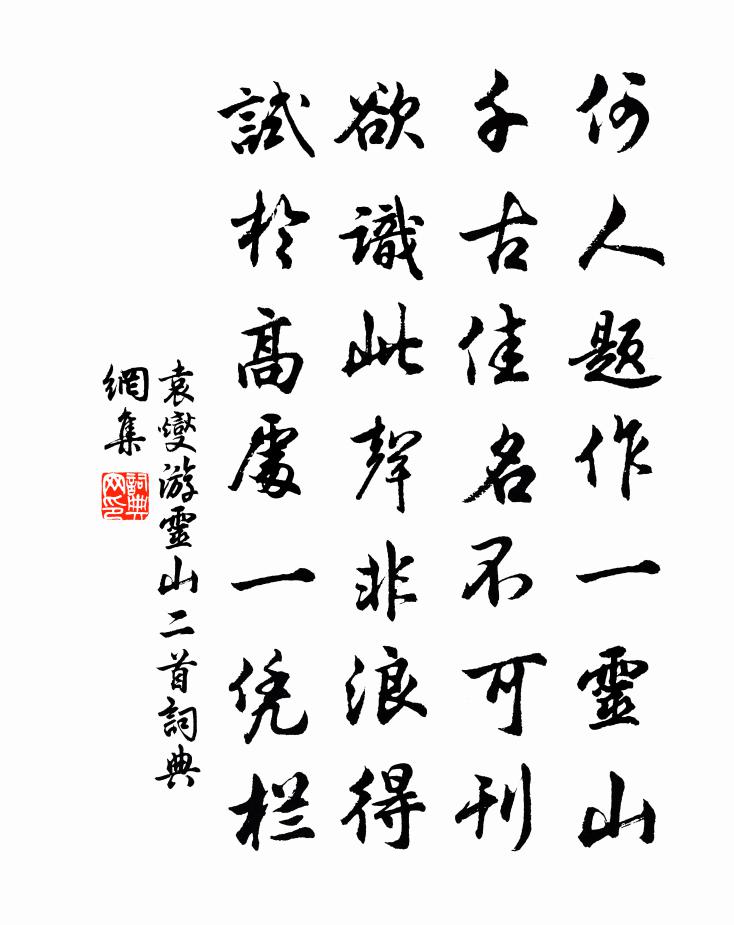 何人题作一靈山
千古佳名不可刊
欲識此聲非浪得
試於高處一凭栏
袁燮游靈山二首詞典
網集
詞典
网印